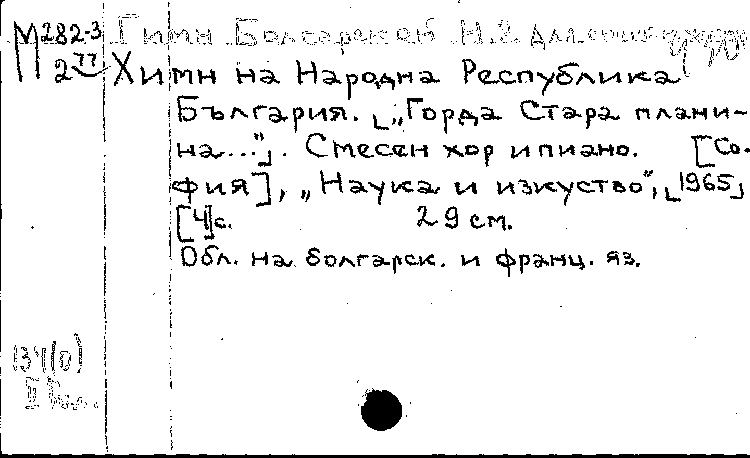 М 282-3 Гимн Болгарской Н.Р. для смеш хора
2 77 Химн на Народна Република
България. [„Горда Стара плани-
на..."]. Смесен хор и пиано. [Со-
фия], „Наука и изкуство", [1965]
[4]с. 29 см.
Обл. на болгарск. и франц. яз.
134(0)